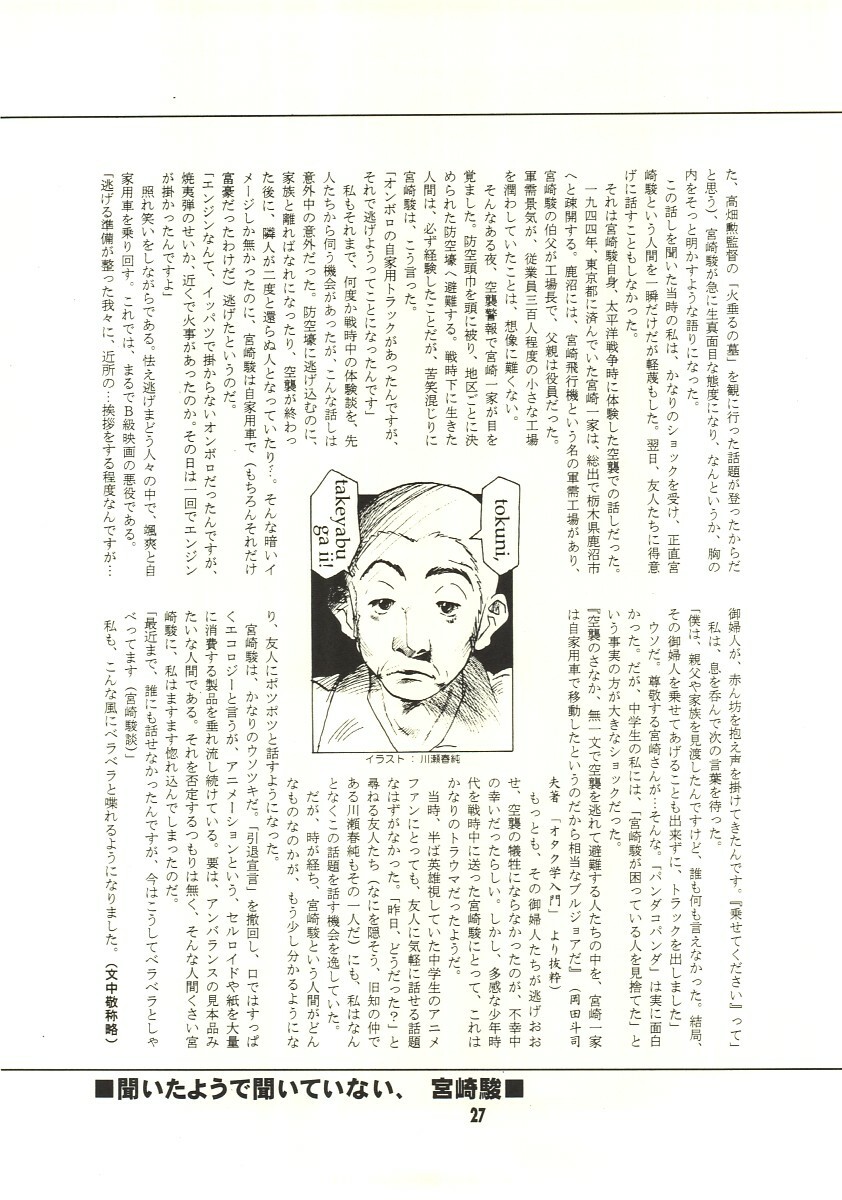 た、高畑勲監督の「火垂るの墓」を観に行った話題が登ったからだ
と思う)、宮崎駿が急に生真面目な態度になり、なんというか、胸の
内をそっと明かすような語りになった。
この話しを聞いた当時の私は、かなりのショックを受け、正直宮
崎駿という人間を一瞬だけだが軽蔑もした。翌日、友人たちに得意
げに話すこともしなかった。
それは宮崎駿自身、太平洋戦争時に体験した空襲での話しだった。
一九四四年、東京都に済んでいた宮崎一家は、総出で栃木県鹿沼市
へと疎開する。鹿沼には、宮崎飛行機という名の軍需工場があり、
宮崎駿の伯父が工場長で、父親は役員だった。
軍需景気が、従業員三百人程度の小さな工場
を潤わしていたことは、想像に難くない。
そんなある夜、空襲警報で宮崎一家が目を
覚ました。防空頭巾を頭に被り、地区ごとに決
められた防空壕へ避難する。戦時下に生きた
人間は、必ず経験したことだが、苦笑混じりに
宮崎駿は、こう言った。
「オンボロの自家用トラックがあったんですが、
それで逃げようってことになったんです」
私もそれまで、何度か戦時中の体験談を、先
人たちから伺う機会があったが、こんな話しは
意外中の意外だった。防空壕に逃げ込むのに、
家族と離ればなれになったり、空襲が終わっ
た後に、隣人が二度と還らぬ人となっていたり…。そんな暗いイ
メージしか無かったのに、宮崎駿は自家用車で(もちろんそれだけ
富豪だったわけだ)逃げたというのだ。
「エンジンなんて、イッパツで掛からないオンボロだったんですが、
焼夷弾のせいか、近くで火事があったのか。その日は一回でエンジン
が掛かったんですよ」
照れ笑いをしながらである。怯え逃げまどう人々の中で、颯爽と自
家用車を乗り回す。これでは、まるでB級映画の悪役である。
「逃げる準備が整った我々に、近所の…挨拶をする程度なんですが…
tokuni,
takeyabu
ga ii!
イラスト：川瀬春純
御婦人が、赤ん坊を抱え声を掛けてきたんです。『乗せてください』って」
私は、息を呑んで次の言葉を待った。
「僕は、親父や家族を見渡したんですけど、誰も何も言えなかった。結局、
その御婦人を乗せてあげることも出来ずに、トラックを出しました」
ウソだ。尊敬する宮崎さんが…そんな。「パンダコパンダ」は実に面白
かった。だが、中学生の私には、「宮崎駿が困っている人を見捨てた」と
いう事実の方が大きなショックだった。
『空襲のさなか、無一文で空襲を逃れて避難する人たちの中を、宮崎一家
は自家用車で移動したというのだから相当なブルジョアだ』(岡田斗司
夫著 「オタク学入門」 より抜粋)
もっとも、その御婦人たちが逃げおお
せ、空襲の犠牲にならなかったのが、不幸中
の幸いだったらしい。しかし、多感な少年時
代を戦時中に送った宮崎駿にとって、これは
かなりのトラウマだったようだ。
当時、半ば英雄視していた中学生のアニメ
ファンにとっても、友人に気軽に話せる話題
なはずがなかった。「昨日、どうだった?」と
尋ねる友人たち(なにを隠そう、旧知の仲で
ある川瀬春純もその一人だ)にも、私はなん
となくこの話題を話す機会を逸していた。
だが、時が経ち、宮崎駿という人間がどん
なものなのかが、もう少し分かるようにな
り、友人にポツポツと話すようになった。
宮崎駿は、かなりのウソツキだ。「引退宣言」を撤回し、口ではすっぱ
くエコロジーと言うが、アニメーションという、セルロイドや紙を大量
に消費する製品を垂れ流し続けている。要は、アンバランスの見本品み
たいな人間である。それを否定するつもりは無く、そんな人間くさい宮
崎駿に、私はますます惚れ込んでしまったのだ。
「最近まで、誰にも話せなかったんですが、今はこうしてベラベラとしゃ
べってます(宮崎駿談)」
私も、こんな風にベラベラと喋れるようになりました。(文中敬称略)
■聞いたようで聞いていない、 宮崎駿■
27